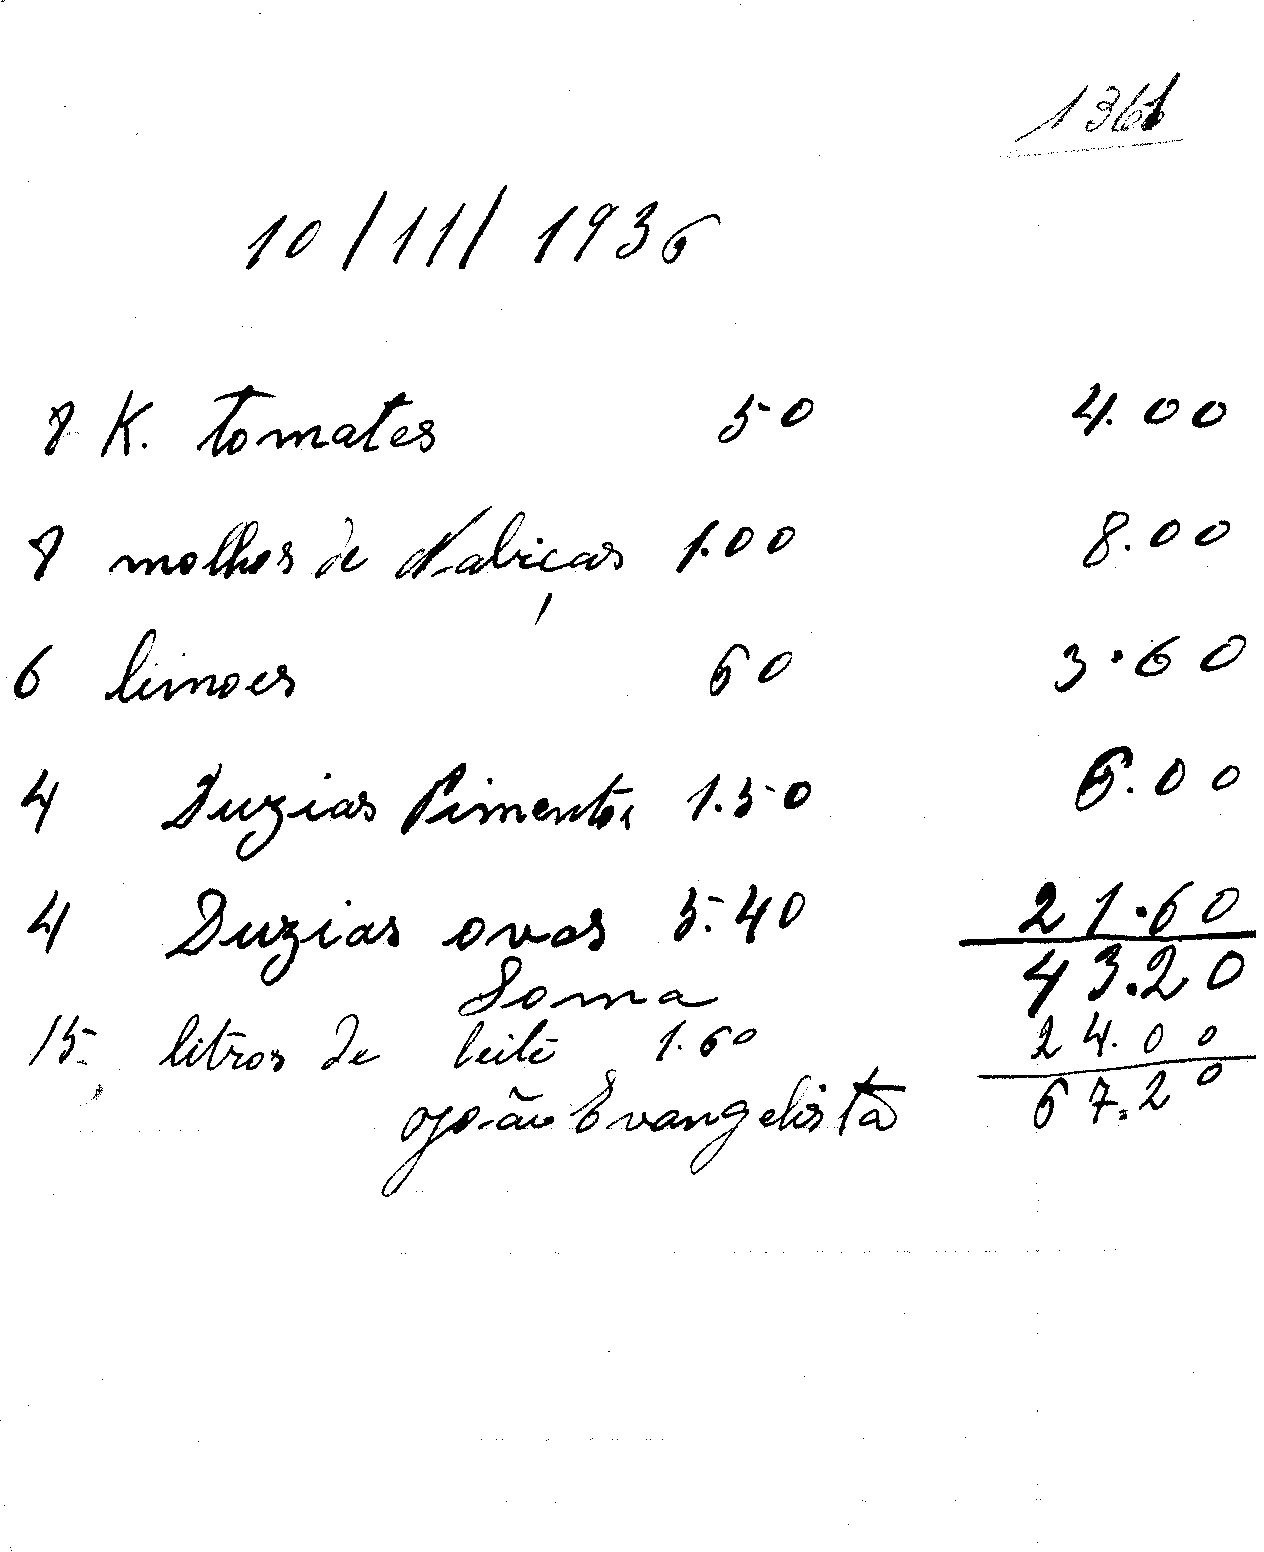 10/11/1936
8 K. tomates 50 4.00
8 molhos de Nabiças 1.00 8.00
6 limoes 60 3.60
4 Duzias Pimentos 1.50 6.00
4 Duzias ovos 5.40 21.60
Soma 43.20
15 litros de leite 1.60 24.00
João Evangelista 67.20